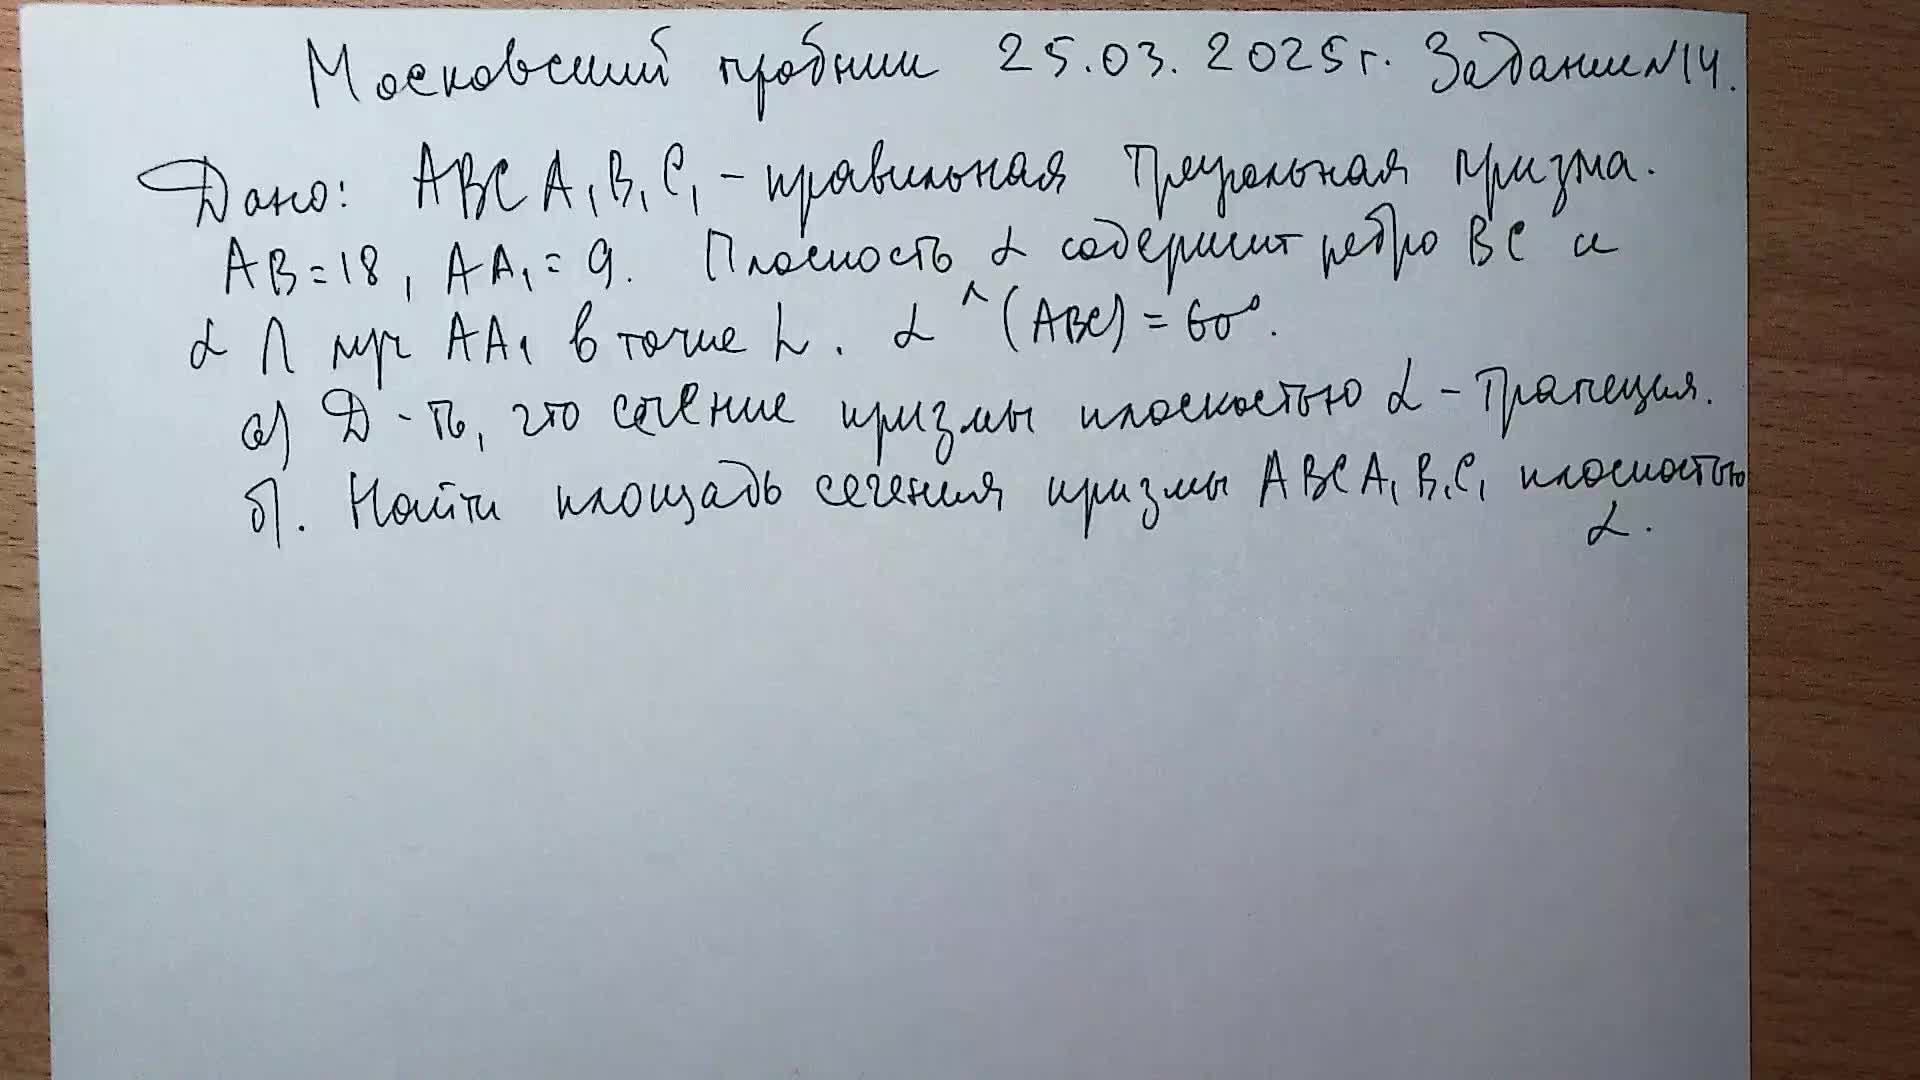 Московский пробник 25.03.2025г. Задание №14.
Дано: ABCA₁B₁C₁ - правильная треугольная призма.
AB=18, AA₁=9. Плоскость α содержит ребро BC и
α ∩ луч AA₁ в точке L. α ^ (ABC) = 60°.
а) Д-ть, что сечение призмы плоскостью α - трапеция.
б). Найти площадь сечения призмы ABCA₁B₁C₁ плоскостью
α.